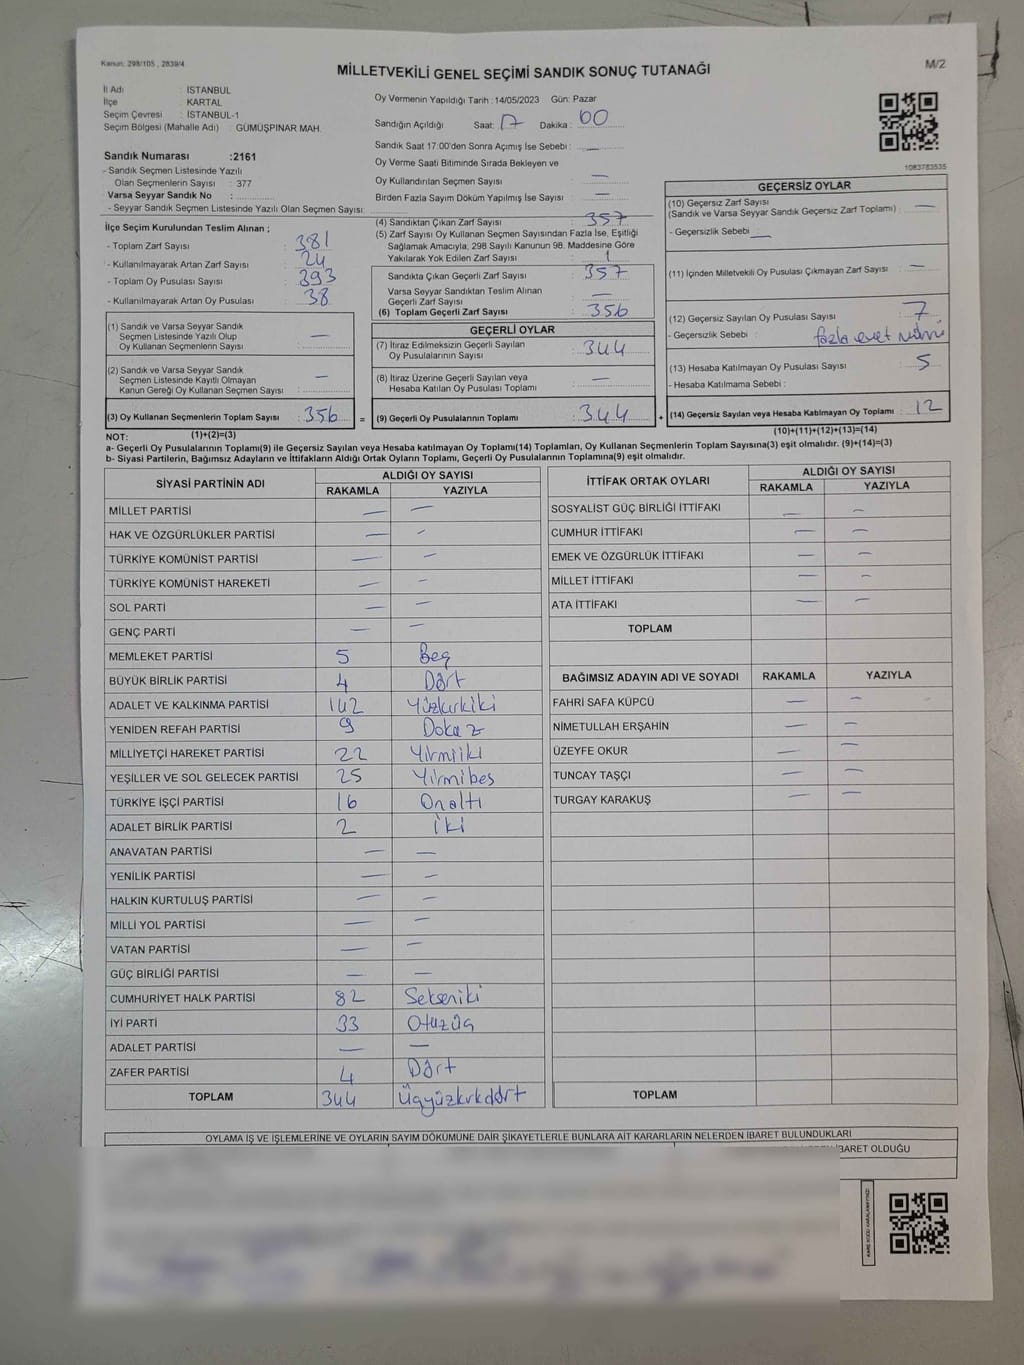 Kanun: 298/105 , 2839/4
MİLLETVEKİLİ GENEL SEÇİMİ SANDIK SONUÇ TUTANAĞI
M/2
İl Adı : İSTANBUL
İlçe : KARTAL
Seçim Çevresi : İSTANBUL-1
Seçim Bölgesi (Mahalle Adı) : GÜMÜŞPINAR MAH.
Sandık Numarası :2161
- Sandık Seçmen Listesinde Yazılı
Olan Seçmenlerin Sayısı : 377
Varsa Seyyar Sandık No :
- Seyyar Sandık Seçmen Listesinde Yazılı Olan Seçmen Sayısı:
Oy Vermenin Yapıldığı Tarih :14/05/2023 Gün: Pazar
Sandığın Açıldığı Saat: 17 Dakika: 00
Sandık Saat 17:00'den Sonra Açımış İse Sebebi : —
Oy Verme Saati Bitiminde Sırada Bekleyen ve
Oy Kullandırılan Seçmen Sayısı : —
Birden Fazla Sayım Döküm Yapılmış İse Sayısı : —
1083783535
İlçe Seçim Kurulundan Teslim Alınan ;
- Toplam Zarf Sayısı : 381
- Kullanılmayarak Artan Zarf Sayısı : 24
- Toplam Oy Pusulası Sayısı : 393
- Kullanılmayarak Artan Oy Pusulası : 38
(1) Sandık ve Varsa Seyyar Sandık
Seçmen Listesinde Yazılı Olup
Oy Kullanan Seçmenlerin Sayısı : —
(2) Sandık ve Varsa Seyyar Sandık
Seçmen Listesinde Kayıtlı Olmayan
Kanun Gereği Oy Kullanan Seçmen Sayısı : —
(3) Oy Kullanan Seçmenlerin Toplam Sayısı : 356 =
(1)+(2)=(3)
(4) Sandıktan Çıkan Zarf Sayısı : 357
(5) Zarf Sayısı Oy Kullanan Seçmen Sayısından Fazla İse, Eşitliği
Sağlamak Amacıyla, 298 Sayılı Kanunun 98. Maddesine Göre
Yakılarak Yok Edilen Zarf Sayısı : 1
Sandıkta Çıkan Geçerli Zarf Sayısı : 357
Varsa Seyyar Sandıktan Teslim Alınan
Geçerli Zarf Sayısı : —
(6) Toplam Geçerli Zarf Sayısı : 356
GEÇERLİ OYLAR
(7) İtiraz Edilmeksizin Geçerli Sayılan
Oy Pusulalarının Sayısı : 344
(8) İtiraz Üzerine Geçerli Sayılan veya
Hesaba Katılan Oy Pusulası Toplamı : —
(9) Geçerli Oy Pusulalarının Toplamı : 344 +
GEÇERSİZ OYLAR
(10) Geçersiz Zarf Sayısı
(Sandık ve Varsa Seyyar Sandık Geçersiz Zarf Toplamı) : —
- Geçersizlik Sebebi : —
(11) İçinden Milletvekili Oy Pusulası Çıkmayan Zarf Sayısı : —
(12) Geçersiz Sayılan Oy Pusulası Sayısı : 7
- Geçersizlik Sebebi : fazla evet
(13) Hesaba Katılmayan Oy Pusulası Sayısı : 5
- Hesaba Katılmama Sebebi :
(14) Geçersiz Sayılan veya Hesaba Katılmayan Oy Toplamı : 12
(10)+(11)+(12)+(13)=(14)
NOT:
a- Geçerli Oy Pusulalarının Toplamı(9) ile Geçersiz Sayılan veya Hesaba katılmayan Oy Toplamı(14) Toplamları, Oy Kullanan Seçmenlerin Toplam Sayısına(3) eşit olmalıdır. (9)+(14)=(3)
b- Siyasi Partilerin, Bağımsız Adayların ve İttifakların Aldığı Ortak Oyların Toplamı, Geçerli Oy Pusulalarının Toplamına(9) eşit olmalıdır.
SİYASİ PARTİNİN ADI ALDIĞI OY SAYISI
RAKAMLA YAZIYLA
MİLLET PARTİSİ — —
HAK VE ÖZGÜRLÜKLER PARTİSİ — —
TÜRKİYE KOMÜNİST PARTİSİ — —
TÜRKİYE KOMÜNİST HAREKETİ — —
SOL PARTİ — —
GENÇ PARTİ — —
MEMLEKET PARTİSİ 5 Beş
BÜYÜK BİRLİK PARTİSİ 4 Dört
ADALET VE KALKINMA PARTİSİ 142 Yüzkırkiki
YENİDEN REFAH PARTİSİ 9 Dokuz
MİLLİYETÇİ HAREKET PARTİSİ 22 Yirmiiki
YEŞİLLER VE SOL GELECEK PARTİSİ 25 Yirmibeş
TÜRKİYE İŞÇİ PARTİSİ 16 Onaltı
ADALET BİRLİK PARTİSİ 2 İki
ANAVATAN PARTİSİ — —
YENİLİK PARTİSİ — —
HALKIN KURTULUŞ PARTİSİ — —
MİLLİ YOL PARTİSİ — —
VATAN PARTİSİ — —
GÜÇ BİRLİĞİ PARTİSİ — —
CUMHURİYET HALK PARTİSİ 82 Sekseniki
İYİ PARTİ 33 Otuzüç
ADALET PARTİSİ — —
ZAFER PARTİSİ 4 Dört
TOPLAM 344 Üçyüzkırkdört
İTTİFAK ORTAK OYLARI ALDIĞI OY SAYISI
RAKAMLA YAZIYLA
SOSYALİST GÜÇ BİRLİĞİ İTTİFAKI — —
CUMHUR İTTİFAKI — —
EMEK VE ÖZGÜRLÜK İTTİFAKI — —
MİLLET İTTİFAKI — —
ATA İTTİFAKI — —
TOPLAM
BAĞIMSIZ ADAYIN ADI VE SOYADI RAKAMLA YAZIYLA
FAHRİ SAFA KÜPCÜ — —
NİMETULLAH ERŞAHİN — —
ÜZEYFE OKUR — —
TUNCAY TAŞÇI — —
TURGAY KARAKUŞ — —
TOPLAM
OYLAMA İŞ VE İŞLEMLERİNE VE OYLARIN SAYIM DÖKÜMÜNE DAİR ŞİKAYETLERLE BUNLARA AİT KARARLARIN NELERDEN İBARET BULUNDUKLARI
İBARET OLDUĞU